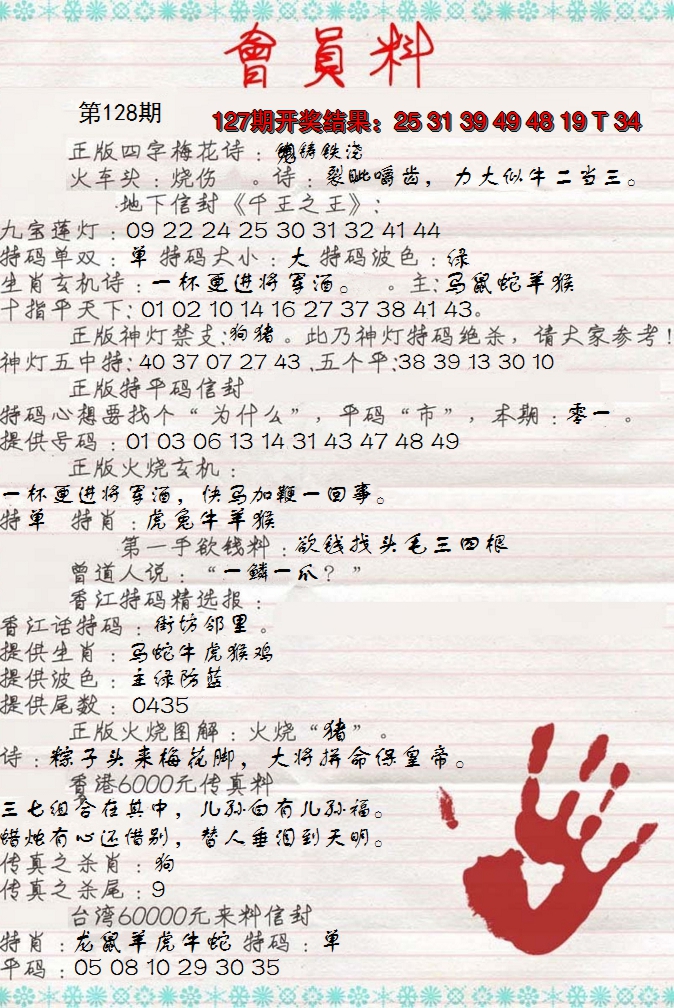 會員料
第128期
127期开奖结果：25 31 39 49 48 19 T 34
正版四字梅花诗：铸铁浇
火车头：烧伤 。诗：裂眦嚼齿，力大似牛二当三。
地下信封《千王之王》：
九宝莲灯：09 22 24 25 30 31 32 41 44
特码单双：单 特码大小：大 特码波色：绿
生肖玄机诗：一杯更进将军酒。 。主：马鼠蛇羊猴
十指平天下：01 02 10 14 16 27 37 38 41 43。
正版神灯禁支：狗猪。此乃神灯特码绝杀，请大家参考！
神灯五中特：40 37 07 27 43 .五个平：38 39 13 30 10
正版特平码信封
特码心想要找个“为什么”，平码“市”，本期：零一。
提供号码：01 03 06 13 14 31 43 47 48 49
正版火烧玄机：
一杯更进将军酒，快马加鞭一回事。
特单 特肖：虎兔牛羊猴
第一手欲钱料：欲钱找头毛三四根
曾道人说：“一鳞一爪？”
香江特码精选报：
香江话特码：街坊邻里。
提供生肖：马蛇牛虎猴鸡
提供波色：主绿防蓝
提供尾数：0435
正版火烧图解：火烧“猪”。
诗：粽子头来梅花脚，大将拼命保皇帝。
香港6000元传真料
三七组合在其中，儿孙自有儿孙福。
蜡烛有心还惜别，替人垂泪到天明。
传真之杀肖：狗
传真之杀尾：9
台湾60000元来料信封
特肖：龙鼠羊虎牛蛇 特码：单
平码：05 08 10 29 30 35